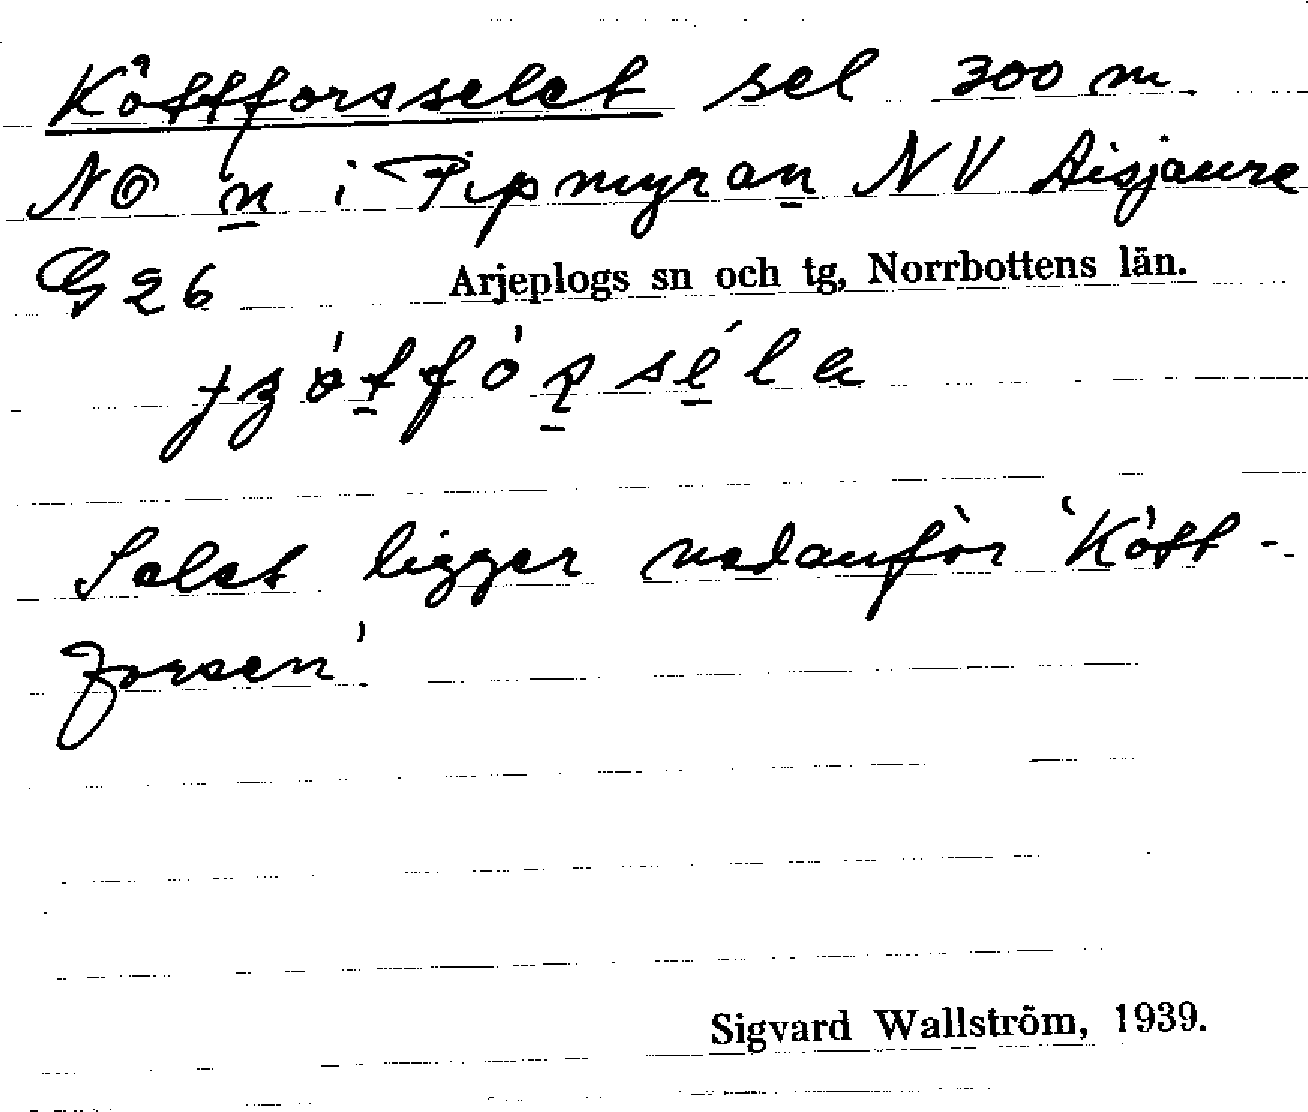 Köttforsselet sel 300 m
NO n i Pipmyran NV Aisjaure
G 26 Arjeplogs sn och tg, Norrbottens län.
Selet ligger nedanför 'Kött-
forsen'
Sigvard Wallström, 1939.